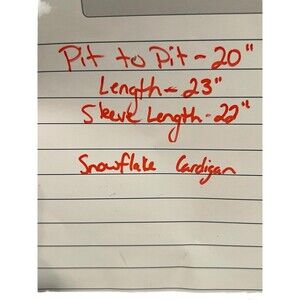 Pit to Pit - 20"
Length - 23"
Sleeve Length - 22"
Snowflake Cardigan